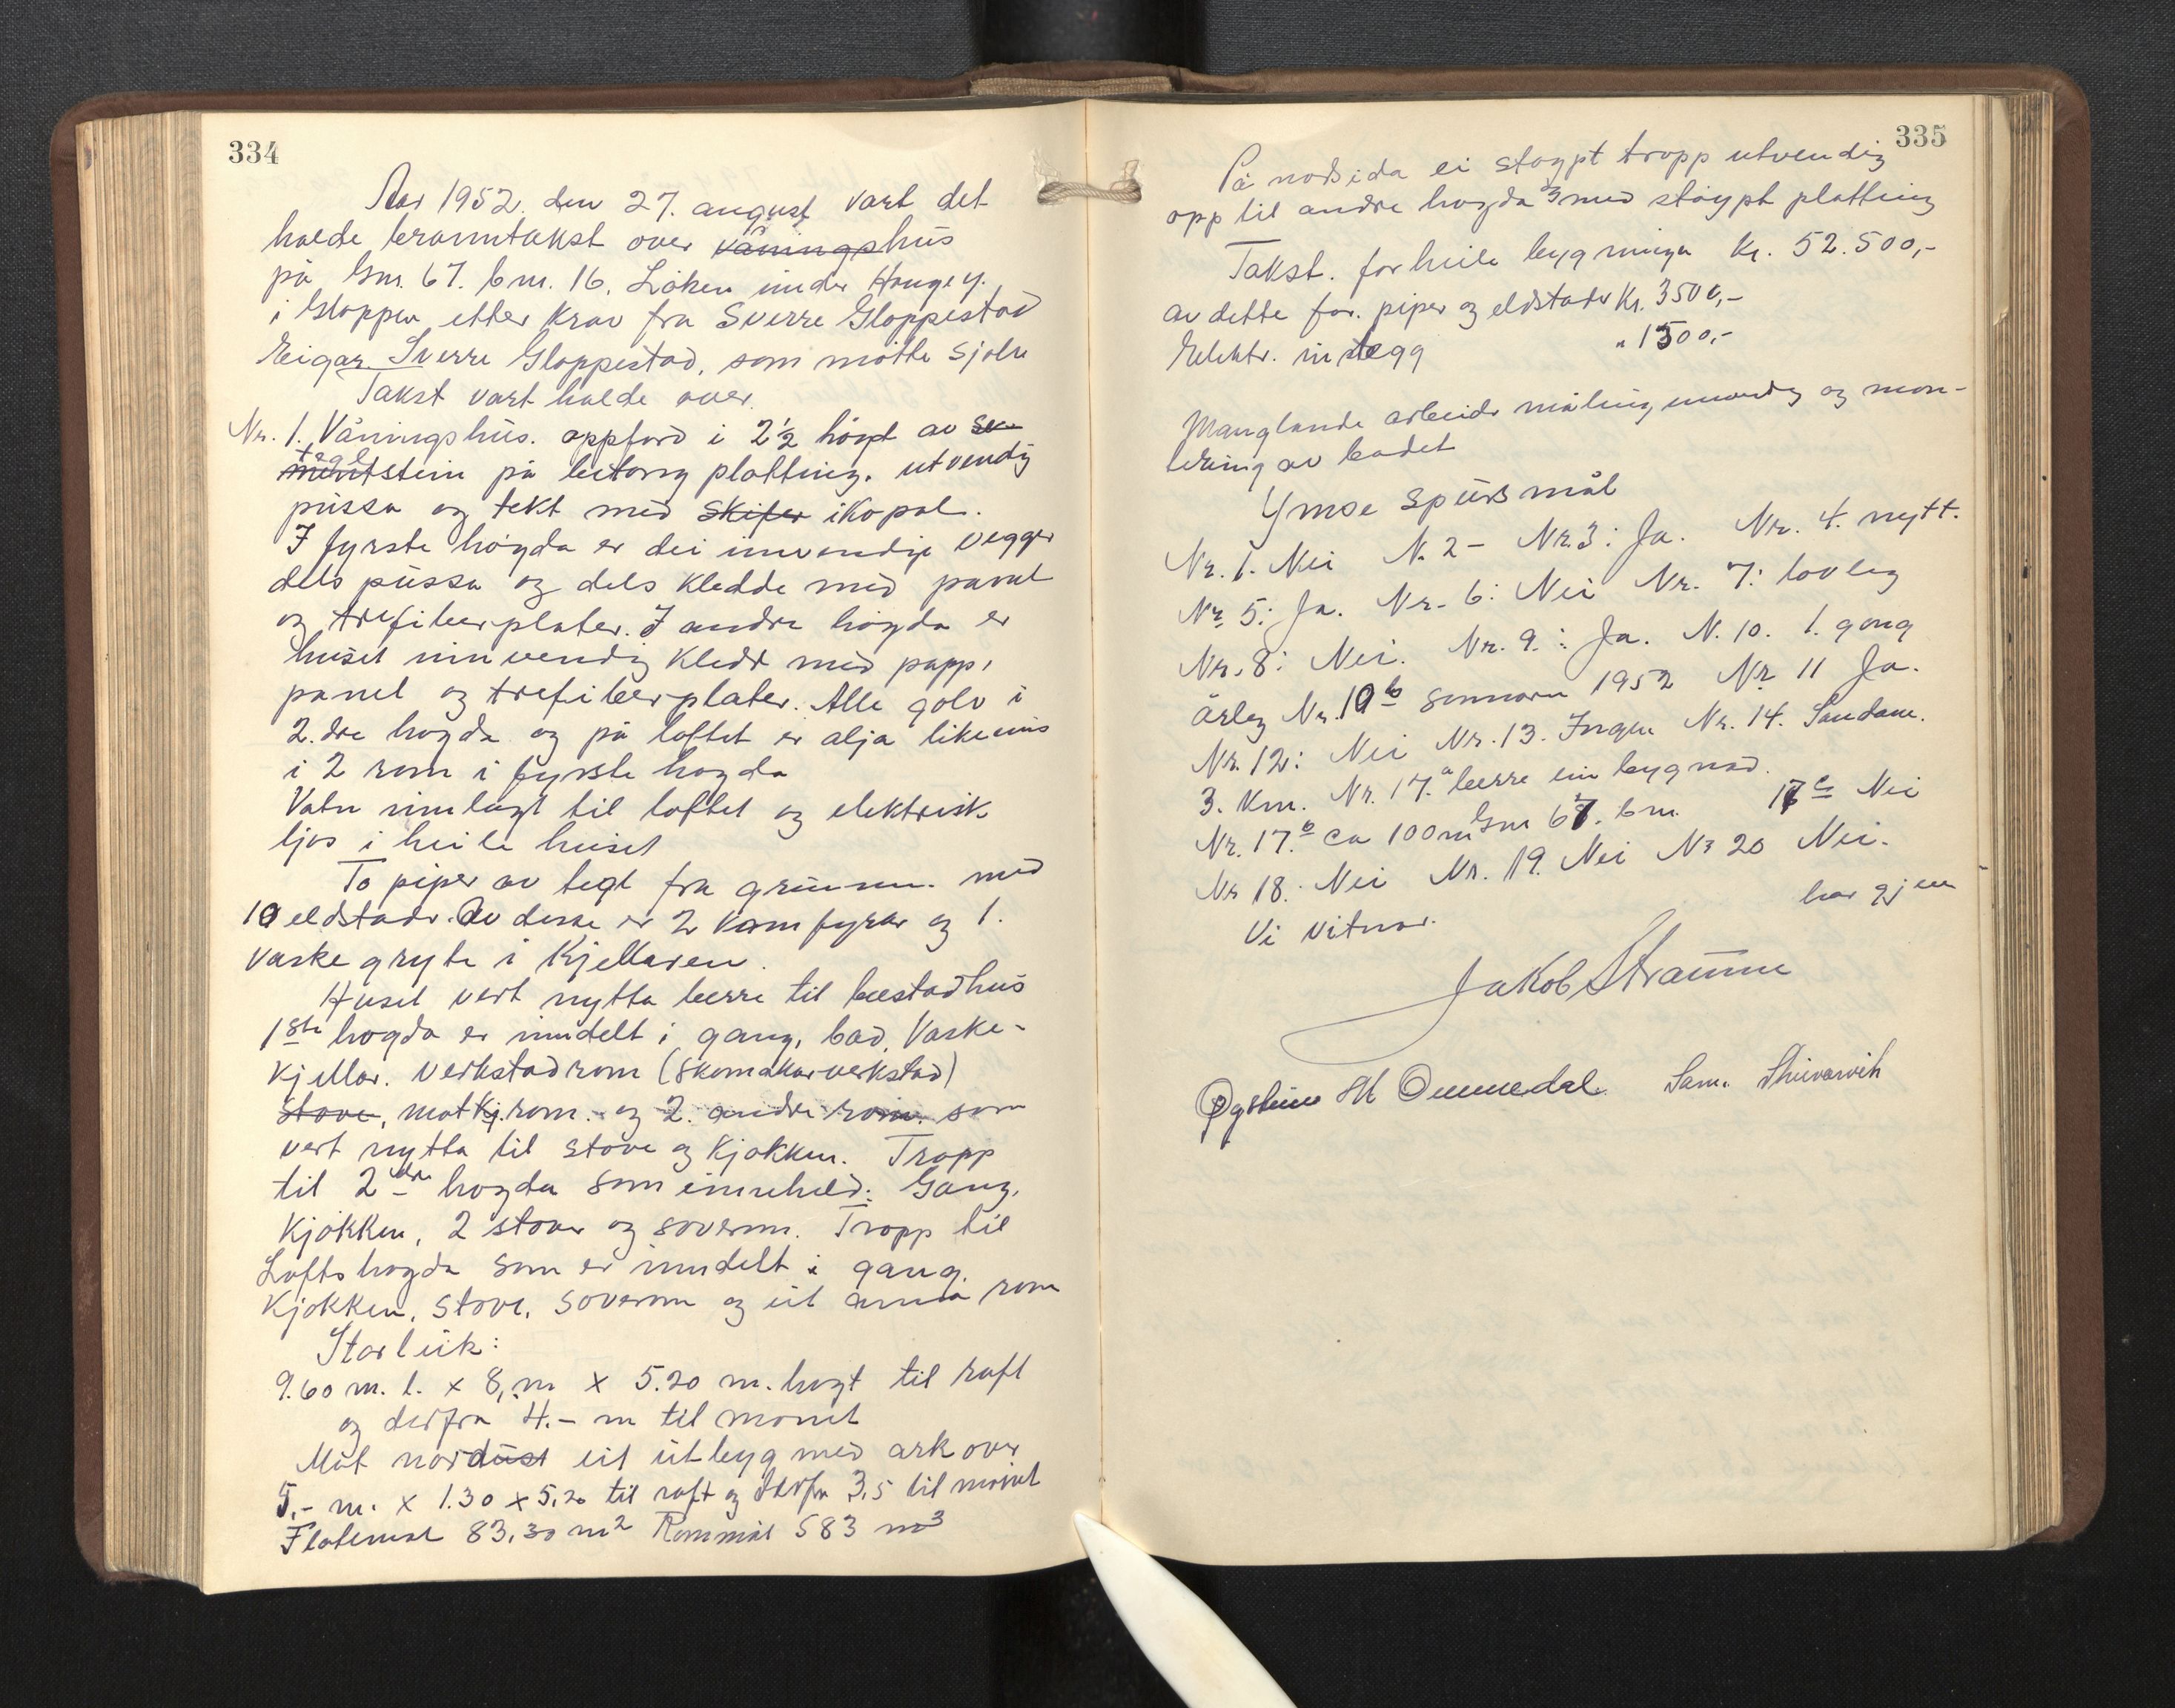 334
Aar 1952. den 27. august vart det
halde branntakst over våningshus
på Gnr. 67. bnr. 16. Løken under Hauge y.
i Gloppen etter krav fra Sverre Gloppestad
Eigar Sverre Gloppestad, som møtte sjølv
Takst vart halde over.
Nr. 1. Våningshus. oppførd i 2½ høgd av se-
mentstein tegl på betong platting. utvendig
pussa og tekt med skifer ikopal.
I fyrste høgda er dei innvendige vegger
dels pussa og dels kledde med panel
og trefiberplater. I andre høgda er
huset innvendig kledd med papp,
panel og trefiberplater. Alle golv i
2.dre høgda og på loftet er alja likeeins
i 2 rom i fyrste høgda
Vatn innlagt til loftet og elektrisk
ljos i heile huset
To piper av tegl fra grunnen. med
10 eldstadr. Av desse er 2 komfyrar og 1.
vaskegryte i kjellaren.
Huset vert nytta berre til bustadhus
1ste høgda er inndelt i gang, bad, Vaske-
kjellar. verkstadrom (skomakarverkstad)
Stove, matkj.rom. og 2. andre rom. som
vert nytta til stove og kjøkken. Tropp
til 2dre høgda som inneheld: Gang,
kjøkken, 2 stover og soverom. Tropp til
Loftshøgda som er inndelt i gang.
Kjøkken, stove, soverom og eit anna rom
Storleik:
9.60 m. l. x 8,- m x 5.20 m. høgt til raft
og derfra 4.- m til mønet
Mot nordaust eit utbygg med ark over
5.- m. x 1.30 x 5,20 til raft og derfra 3,5 til mønet
Flatemål 83.30 m² Rommål 583 m³
335
På nordsida ei støypt tropp utvendig
opp til andre høgda med støypt platting
Takst. for heile bygningen Kr. 52.500,-
av dette for. piper og eldstader Kr. 3500,-
Elektr. innlegg " 1500,-
Manglande arbeide måling innvendig og mon-
tering av badet
Ymse spursmål
Nr. 1. Nei N. 2 - Nr. 3: Ja. Nr. 4. nytt.
Nr. 5: Ja. Nr. 6: Nei Nr. 7: lovleg
Nr. 8: Nei. Nr. 9.: Ja. N. 10. 1. gong
årleg Nr. 10 b sommaren 1952 Nr. 11 Ja.
Nr. 12: Nei Nr. 13. Ingen Nr. 14. Sandane.
3. km. Nr. 17. a berre ein bygnad.
Nr. 17. b ca 100 m Gnr 67. bnr. 17 c Nei
Nr 18. Nei Nr. 19. Nei Nr 20 Nei.
Vi vitnar. har gjen
Jakob Straume
Øystein Ommedal Sam.